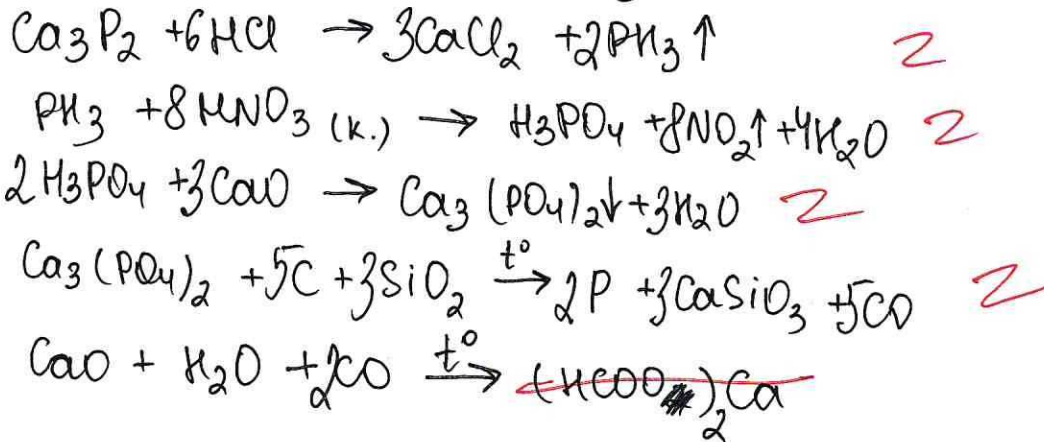 Ca₃P₂ +6HCl → 3CaCl₂ +2PH₃↑ 2
PH₃ +8HNO₃ (к.) → H₃PO₄ +8NO₂↑ +4H₂O 2
2H₃PO₄ +3CaO → Ca₃(PO₄)₂↓ +3H₂O 2
Ca₃(PO₄)₂ +5C +3SiO₂ t° → 2P +3CaSiO₃ +5CO 2
CaO + H₂O +2CO t° → (HCOO)₂Ca